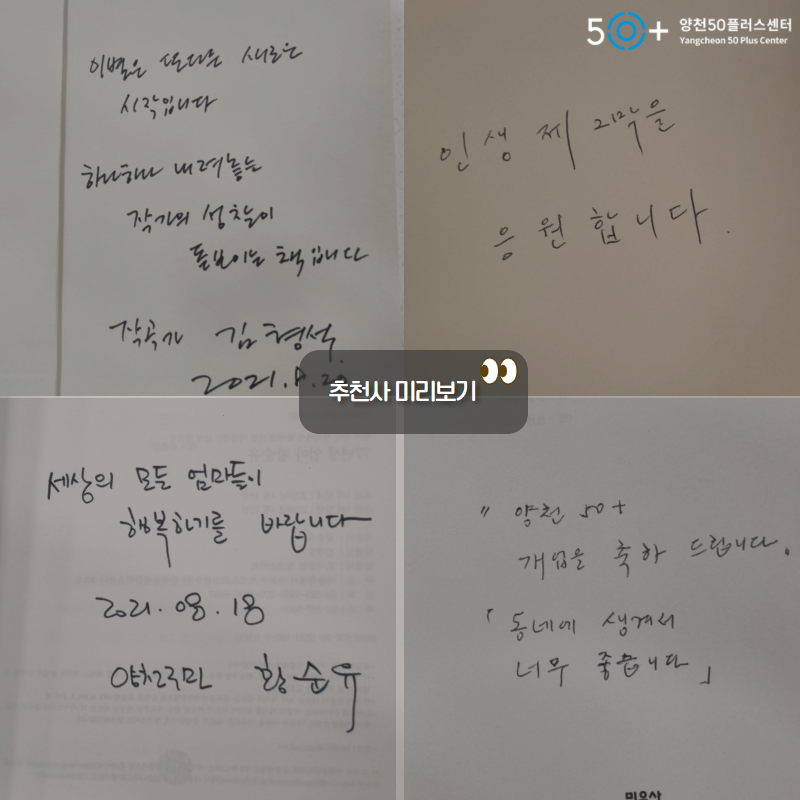 50+ 양천50플러스센터
Yangcheon 50 Plus Center
이별은 또다른 새로운
시작입니다
하나하나 내려놓는
작가의 성찰이
돋보이는 책입니다
작곡가 김형석
2021.8.20
인생 제 2막을
응원합니다.
추천사 미리보기
세상의 모든 엄마들이
행복하기를 바랍니다
2021.08.18
양천구민 황순유
" 양천 50+
개업을 축하 드립니다.
「동네에 생겨서
너무 좋습니다」